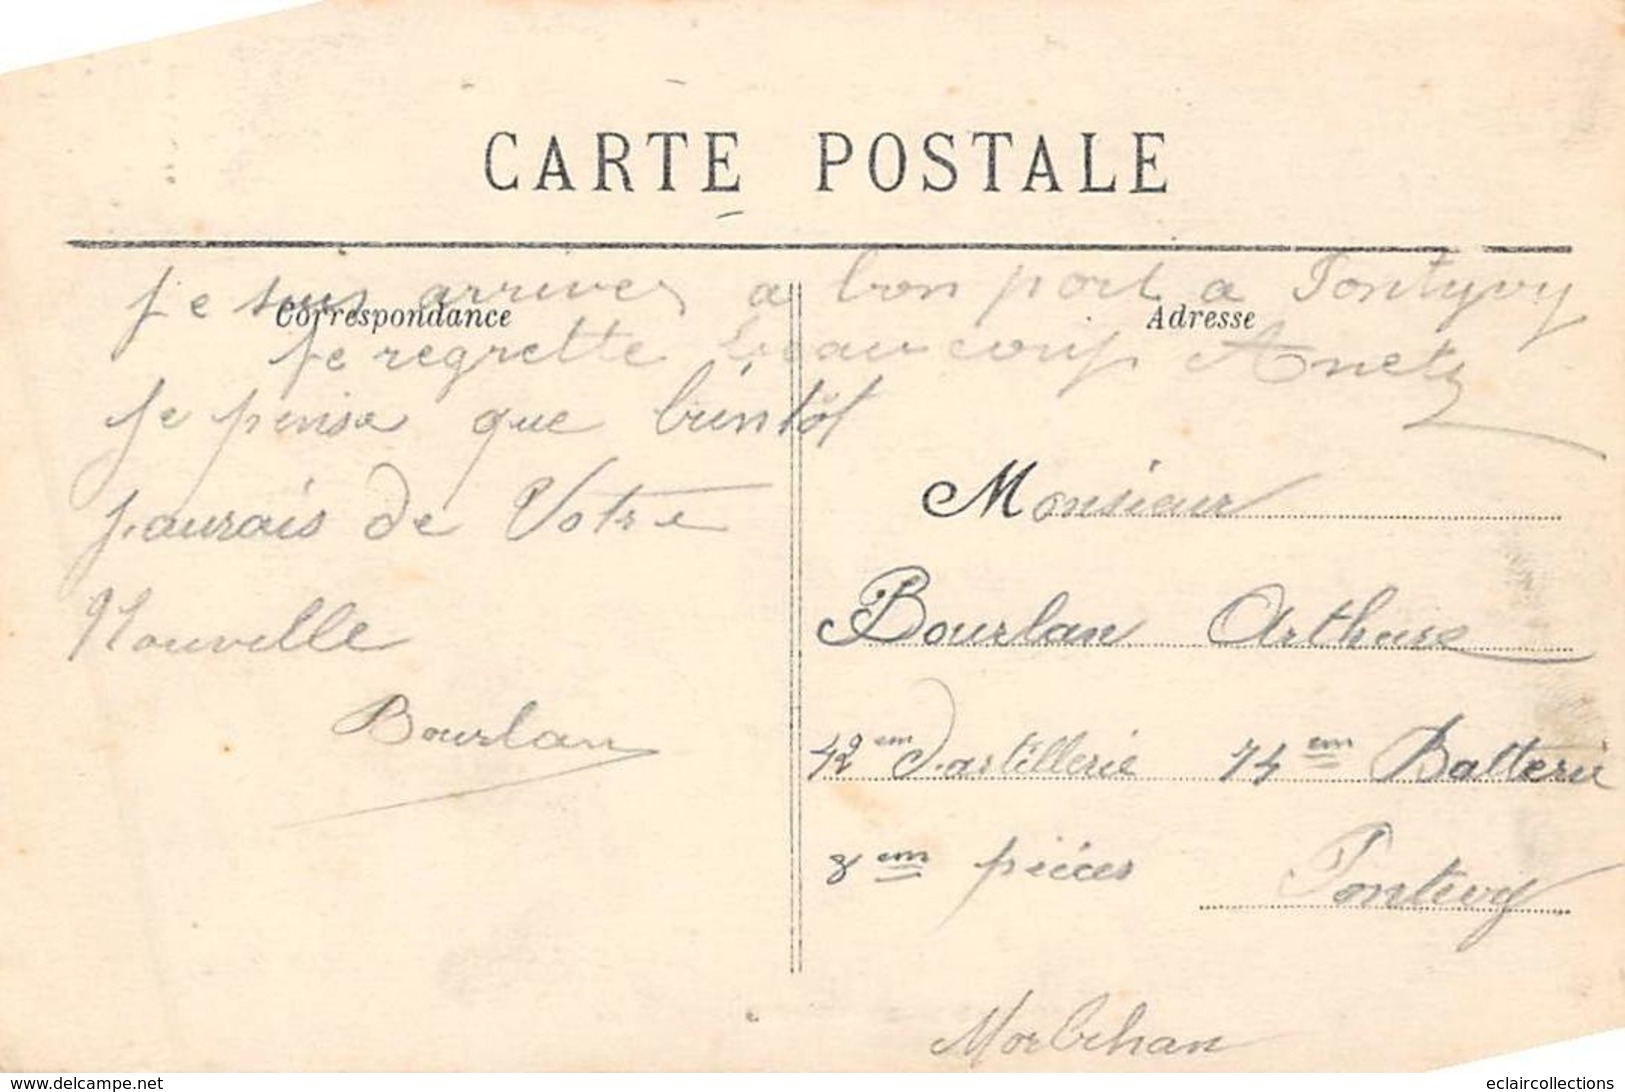 CARTE POSTALE
Correspondance
Adresse
Je suis arriver a bon port a Pontyvy
Je regrette beaucoup Anetz
Je pense que bientôt
j.aurais de Votre
Nouvelle
Bourlan
Monsieur
Bourlan Arthure
42em d.artillerie 74em Batterie
8em pièces Pontivy
Morbihan
eclaircollections